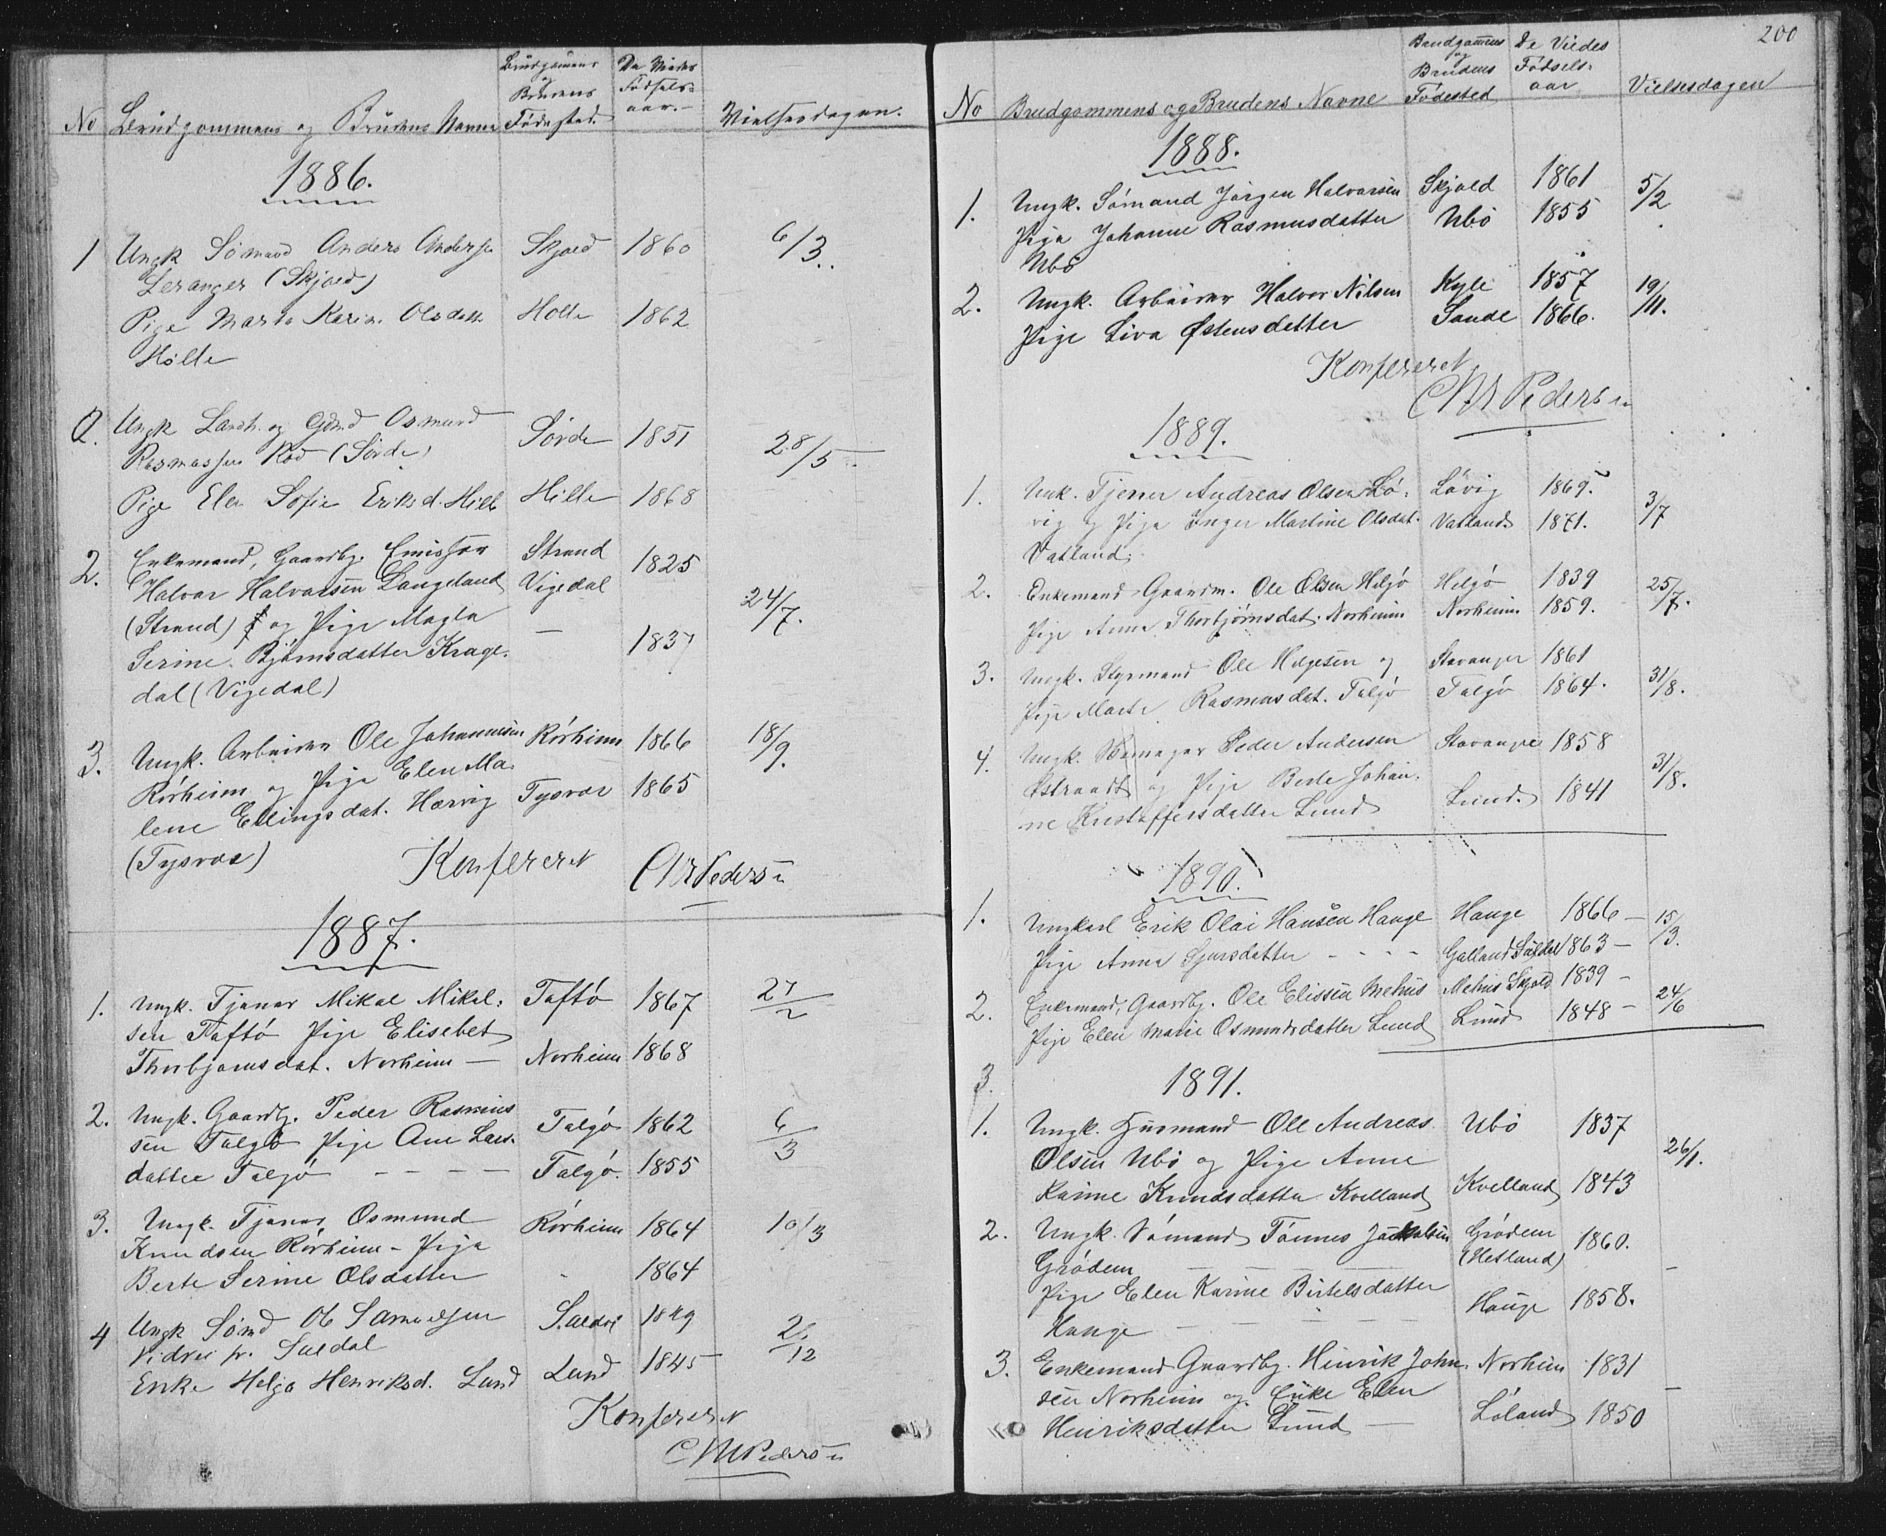 No Brudgommens og Brudens Navne
Brudgommens og Brudens Fødested.
De Viedes Fødsels- aar.
Vielsesdagen.
1886.
1 Ungk Sømand Anders Anders Skjold 1860 6/3
Leranger (Skjold)
Pige Marta Karin Olsdatt Holte 1862
Holte
2. Ungk Landh. og Gbmd Osmund Sørde 1851 28/5
Rasmassen Rød (Sørde)
Pige Elen Sofie Eriksd. Hille Hille 1868
2. Enkemand, Gaardbr. Emissær Strand 1825
Halvar Halvarsen Langeland Vigedal 24/7.
(Strand) og Pige Magla — 1837
Serine Bjørnsdatter Krage-
dal (Vigedal)
3. Ungk. Arbeider Ole Johannesen Rørheim 1866 18/9.
Rørheim og Pige Elen Ma-
lene Ellingsdat. Hervig Tysvær 1865
(Tysvær)
Konfereret
Chr Pedersen
1887.
1. Ungk. Tjener Mikal Mikel- Toftø 1867 27/2
sen Toftø Pige Elisebet
Thorbjørnsdat. Norheim — Norheim 1868
2. Ungk. Gaardbr. Peder Rasmus Talgø 1862 6/3
sen Talgø Pige Ane Lars-
datter Talgø — — — — Talgø. 1855
3. Ungk. Tjener Osmund Rørheim 1864 10/3
Knudsen Rørheim - Pige
Berte Serine Olsdatter - 1864
4 Ungk Sømd Ole Samuelsen 1849 /12
fr. Suldal
Enke Helga Henriksd. Lund Lund 1845
Konfereret
Chr Pedersen
200
No Brudgommens og Brudens Navne
Brudgommens og Brudens Fødested
De Viedes Fødsels- aar
Vielsesdagen
1888.
1. Ungk. Sømand Jørgen Halvorsen Skjold 1861 5/2
Pige Johanne Rasmusdatter Ubø 1855
Ubø
2. Ungk. Arbeider Halvor Nilsen Kyle 1857 19/11.
Pige Siva Østensdatter Sande 1866.
Konfereret
Chr Pedersen
1889.
1. Unk. Tjener Andreas Olsen Lø- Løvig 1869. 3/7
vig og Pige Inger Martine Olsdat. Vatland 1871.
Vatland.
2. Enkemand Gaardm. Ole Olsen Helgø Helgø 1839 25/7.
Pige Anna Thorbjørnsdat. Norheim Norheim 1859.
3. Ungk. Styrmand Ole Helgesen og Stavanger 1861 31/8.
Pige Marte Rasmusdat. Talgø Talgø 1864.
4. Ungk. Peder Andersen Stavanger 1858 31/8.
Østraadt og Pige Berte Johan-
ne Kristoffersdatter Lund Lund. 1841
1890.
1. Ungkarl Erik Olai Hansen Hauge Hauge 1866 — 15/3.
Pige Anna Sjursdatter - - - - Galland Suldal 1863 —
2. Enkemand, Gaardbr. Ole Elissen Mehus Mehus Skjold 1839 — 24/6
Pige Elen Marie Osmundsdatter Lund Lund 1848 —
3. 1891.
1. Ungk. Husmand Ole Andreas Ubø 1837 26/1.
Olsen Ubø og Pige Anne
Karine Knudsdatter Kvelland Kvelland 1843
2. Ungk. Sømand Tønnes Grødem 1860. —
Grødem — — — — (Hetland)
Pige Elen Karine Bertelsdatter
Hauge — — — — Hauge 1858.
3. Enkemand Gaardbr. Hinrik John- Norheim 1831 —
sen Norheim og Enke Elen
Henriksdatter Lund — Løland 1850